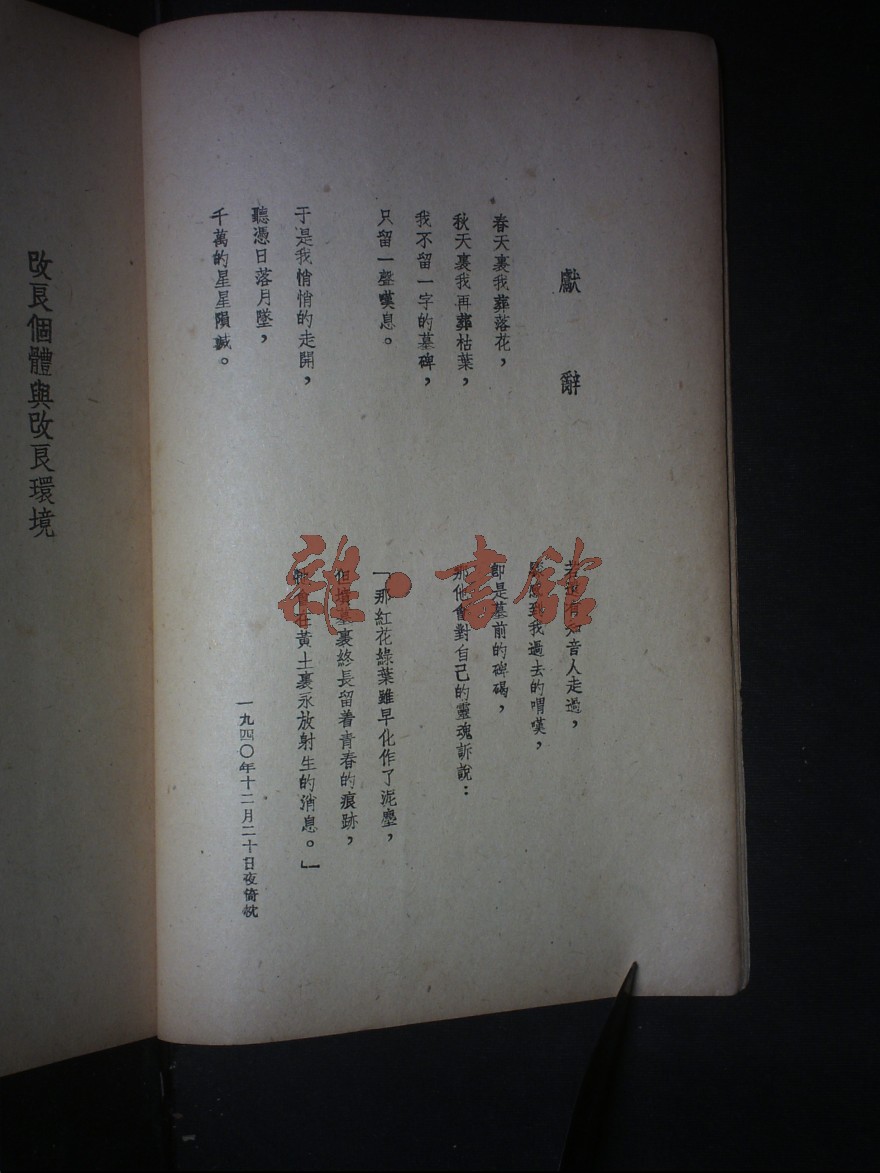 獻辭
春天裏我葬落花，
秋天裏我再葬枯葉，
我不留一字的墓碑，
只留一聲嘆息。
于是我悄悄的走開，
聽憑日落月墜，
千萬的星星隕滅。
若還有知音人走過，
感到我過去的喟嘆，
即是墓前的碑碣，
那他會對自己的靈魂訴說：
「那紅花綠葉雖早化作了泥塵，
但墳墓裏終長留着青春的痕跡，
會在黃土裏永放射生的消息。」
一九四〇年十二月二十日夜倚枕
改良個體與改良環境
雜·書館